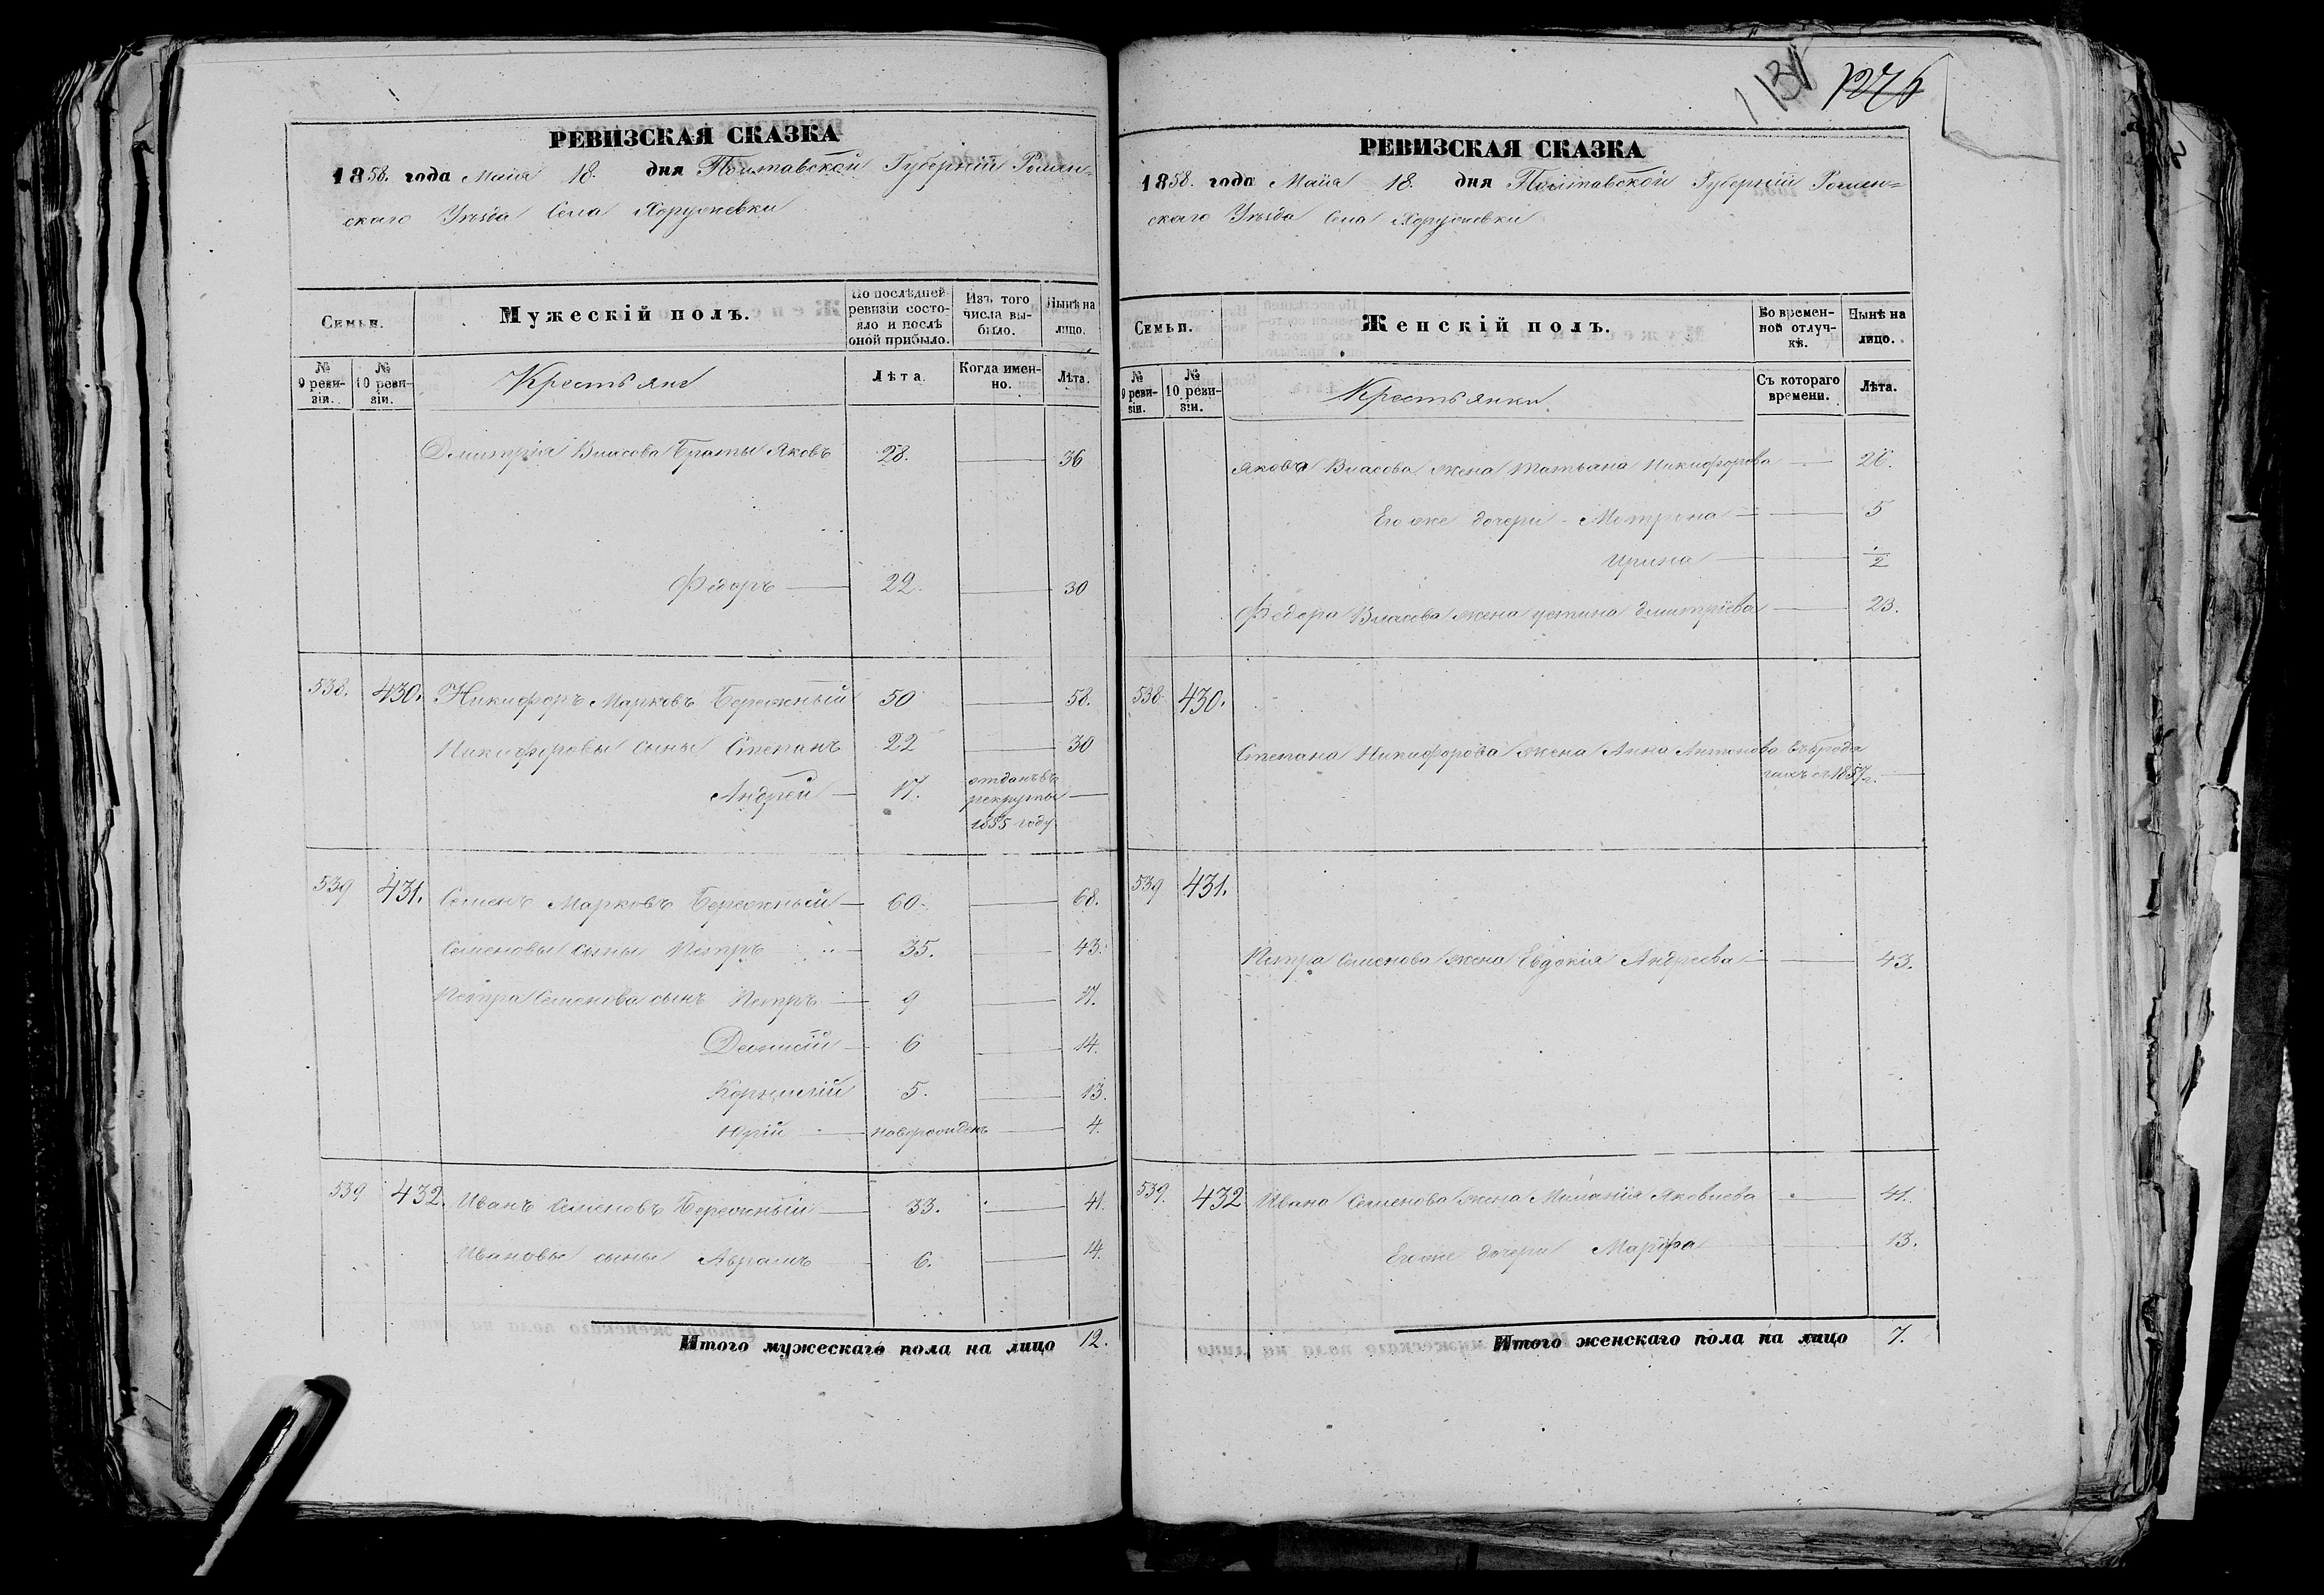 РЕВИЗСКАЯ СКАЗКА
1858. года Маія 18. дня Полтавской Губерніи Ромен=
скаго Уѣзда Села Хоружевки
Семьи.
Мужескій полъ.
По послѣдней ревизіи состояло и послѣ оной прибыло.
Изъ того числа выбыло.
Нынѣ на лицо.
№ 9 ревизіи.
№ 10 ревизіи.
Крестьяне
Лѣта.
Когда именно.
Лѣта.
Дмитрія Власова Браты Яковъ 28. 36
Федоръ 22. 30
538. 430. Никифоръ Марковъ Бережный 50 58.
Никифоровы сыны Степанъ 22 30
Андрей 17. отданъ въ рекруты 1855 году
539 431. Семенъ Марковъ Бережный 60. 68.
Семеновы сыны Петръ 35. 43.
Петра Семенова сынъ Петръ 9 17.
Деонисій 6 14.
Корнилій 5. 13.
Юрій новорожденъ 4.
539 432. Иванъ Семеновъ Бережный 33. 41.
Ивановы сыны Абрамъ 6. 14.
Итого мужескаго пола на лицо 12.
131 1276
РЕВИЗСКАЯ СКАЗКА
1858. года Маія 18. дня Полтавской Губерніи Ромен=
скаго Уѣзда Села Хоружевки
Семьи.
Женскій полъ.
Во временной отлучкѣ.
Нынѣ на лицо.
№ 9 ревизіи.
№ 10 ревизіи.
Крестьянки
Съ котораго времени.
Лѣта.
Якова Власова жена Татьана Никифорова 26.
Его же дочери Мотрона 5
Ирина 1/2
Федора Власова жена Устина Дмитріева 23.
538 430.
Степана Никифорова жена Анна Антонова въ бродягахъ съ 1857 г.
539 431.
Петра Семенова жена Евдокія Андреева 43.
539. 432 Ивана Семенова жена Миланія Яковлева 41.
Его же дочери Марѳа 13.
Итого женскаго пола на лицо 7.